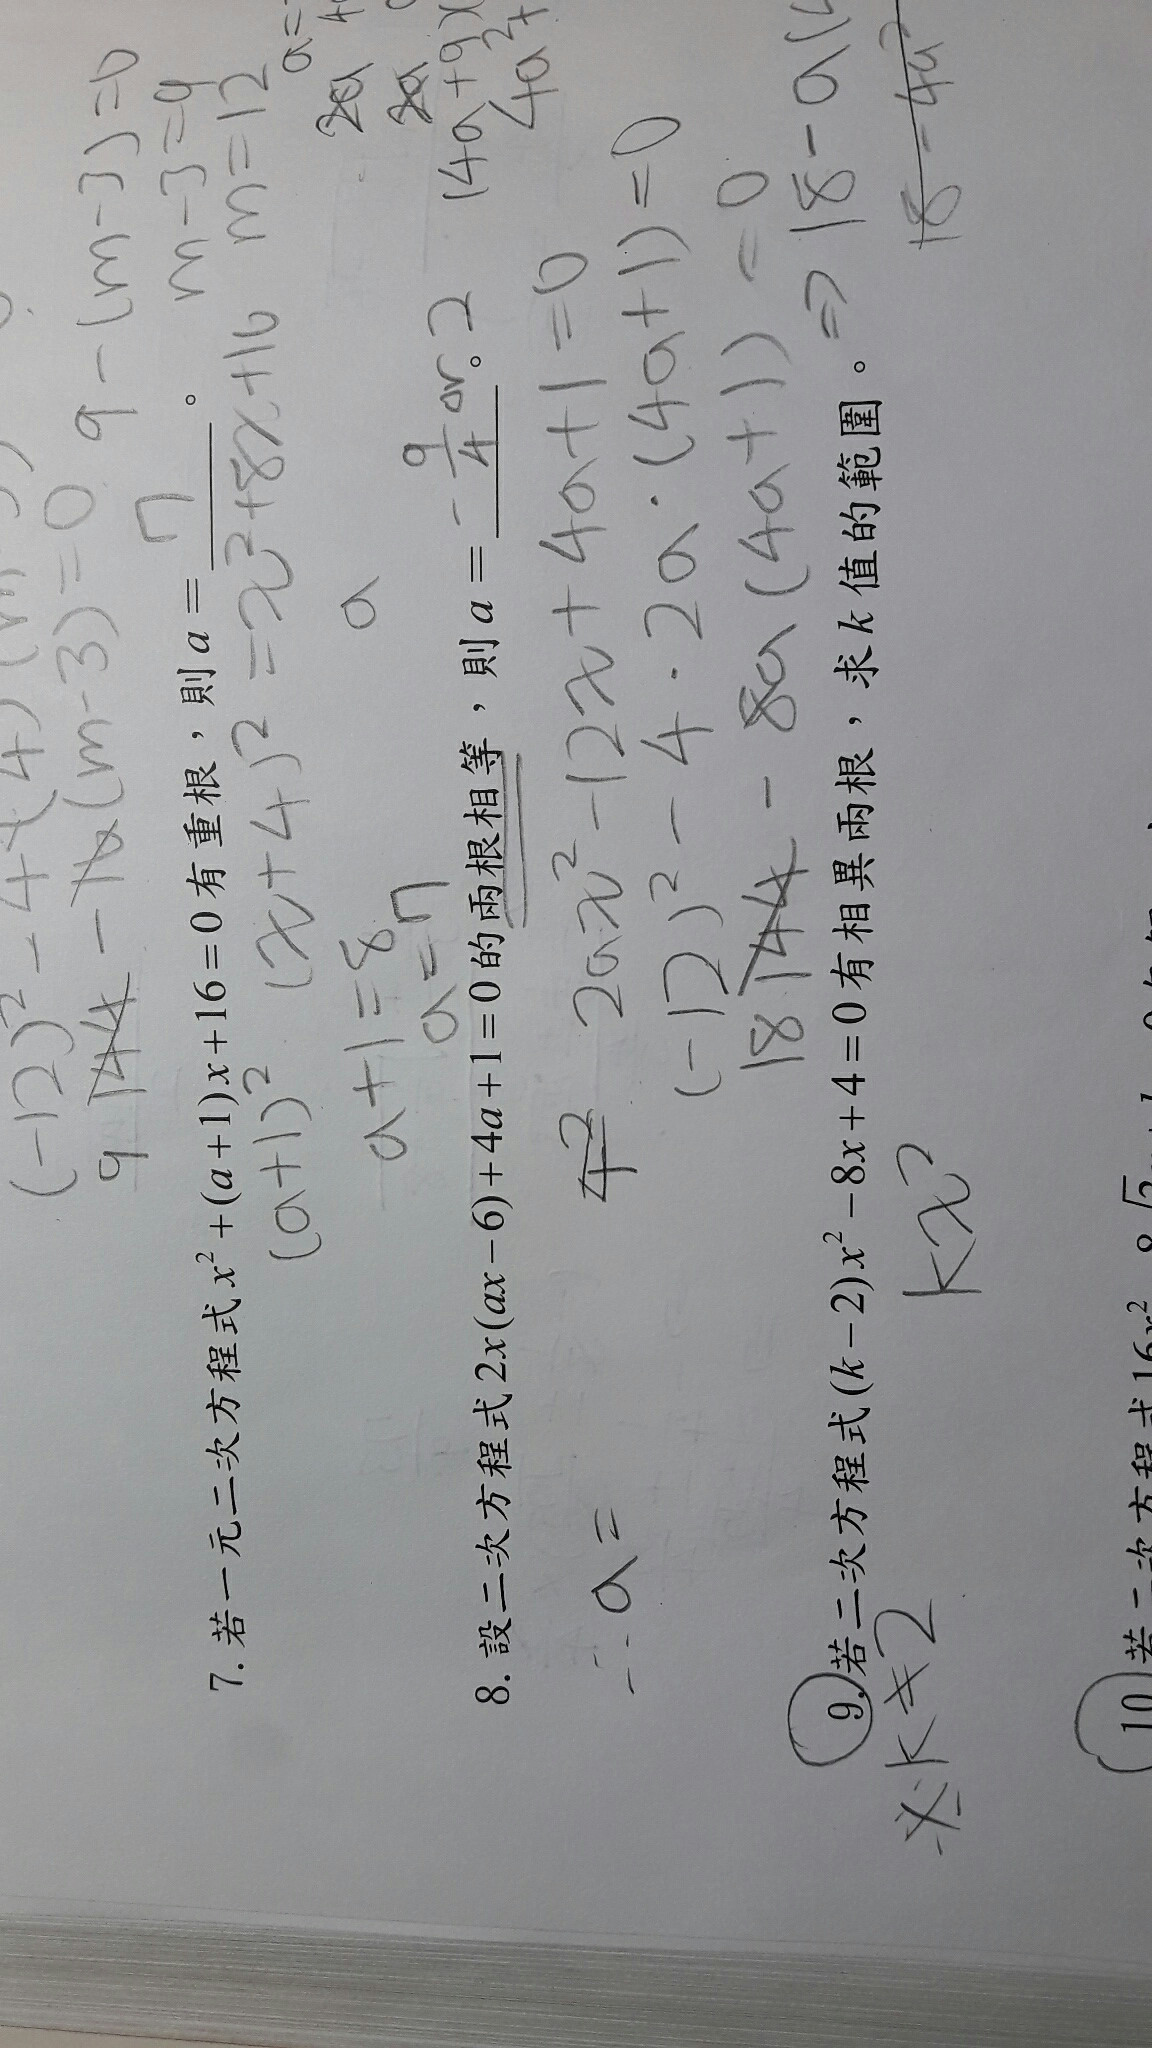 (-12)² - 4·(4)(m-3)
144 - 16(m-3) = 0  9 - (m-3) = 0
9
m-3 = 9
m = 12
7. 若一元二次方程式 x² + (a+1)x + 16 = 0 有重根，則 a = 7 。
(a+1)² (x+4)² = x² + 8x + 16
a+1 = 8
a = 7
a
8. 設二次方程式 2x(ax-6) + 4a + 1 = 0 的兩根相等，則 a = -9/4 or 2 。
(4a+9)(
4a²+
2ax² - 12x + 4a + 1 = 0
∴ a =
(-12)² - 4·2a·(4a+1) = 0
18 144 - 8a(4a+1) = 0
⇒ 18 - a(4
18 - 4a²
9. 若二次方程式 (k-2)x² - 8x + 4 = 0 有相異兩根，求 k 值的範圍。
※ k ≠ 2
kx²
10
16x²